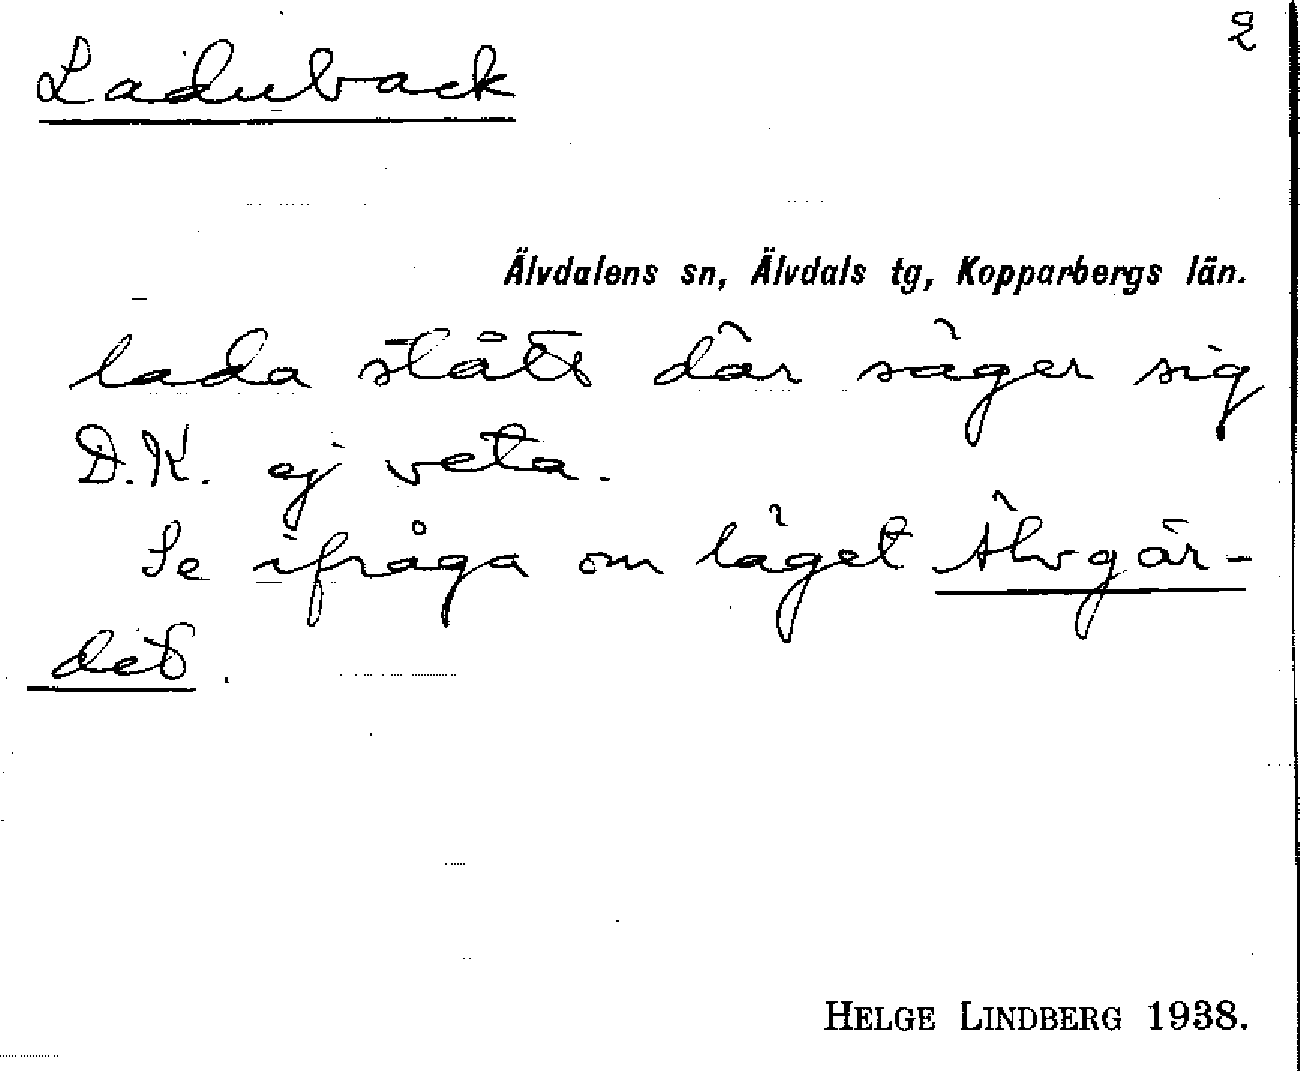 2
Laduback
Älvdalens sn, Älvdals tg, Kopparbergs län.
lada stått där säger sig
D.K. ej veta.
Se ifråga om läget Älvgär-
det.
HELGE LINDBERG 1938.